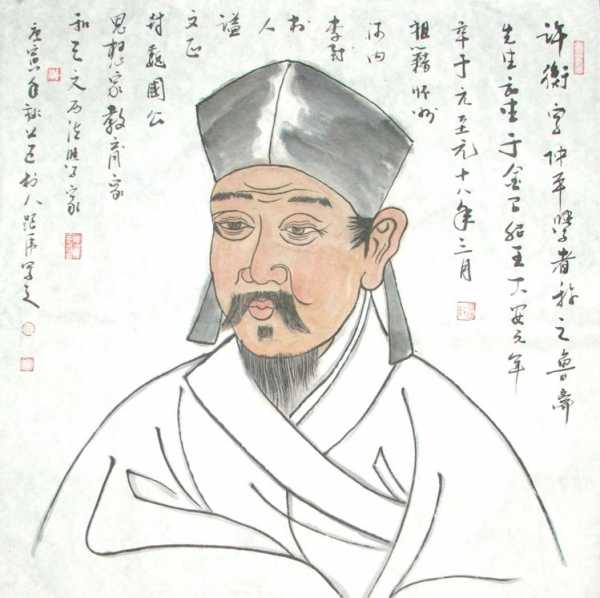 许衡字仲平学者称之鲁斋
先生出生于金卫绍王大安元年
卒于元至元十八年三月
祖籍怀州
河内
李封
村
人
谥
文正
封魏国公
思想家教育家
和天文历法学家
庚寅年村人写之